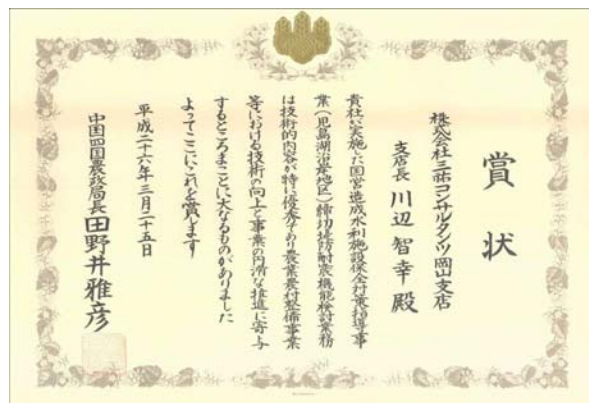 賞状
株式会社三祐コンサルタンツ岡山支店
支店長 川辺智幸 殿
貴社が実施した国営造成水利施設保全対策指導事
業(児島湖沿岸地区)締切堤防耐震機能検討業務
は技術的内容が特に優秀であり農業農村整備事業
等における技術の向上と事業の円滑な推進に寄与
するところまことに大なるものがありました
よってここにこれを賞します
平成二十六年三月二十五日
中国四国農政局長 田野井雅彦